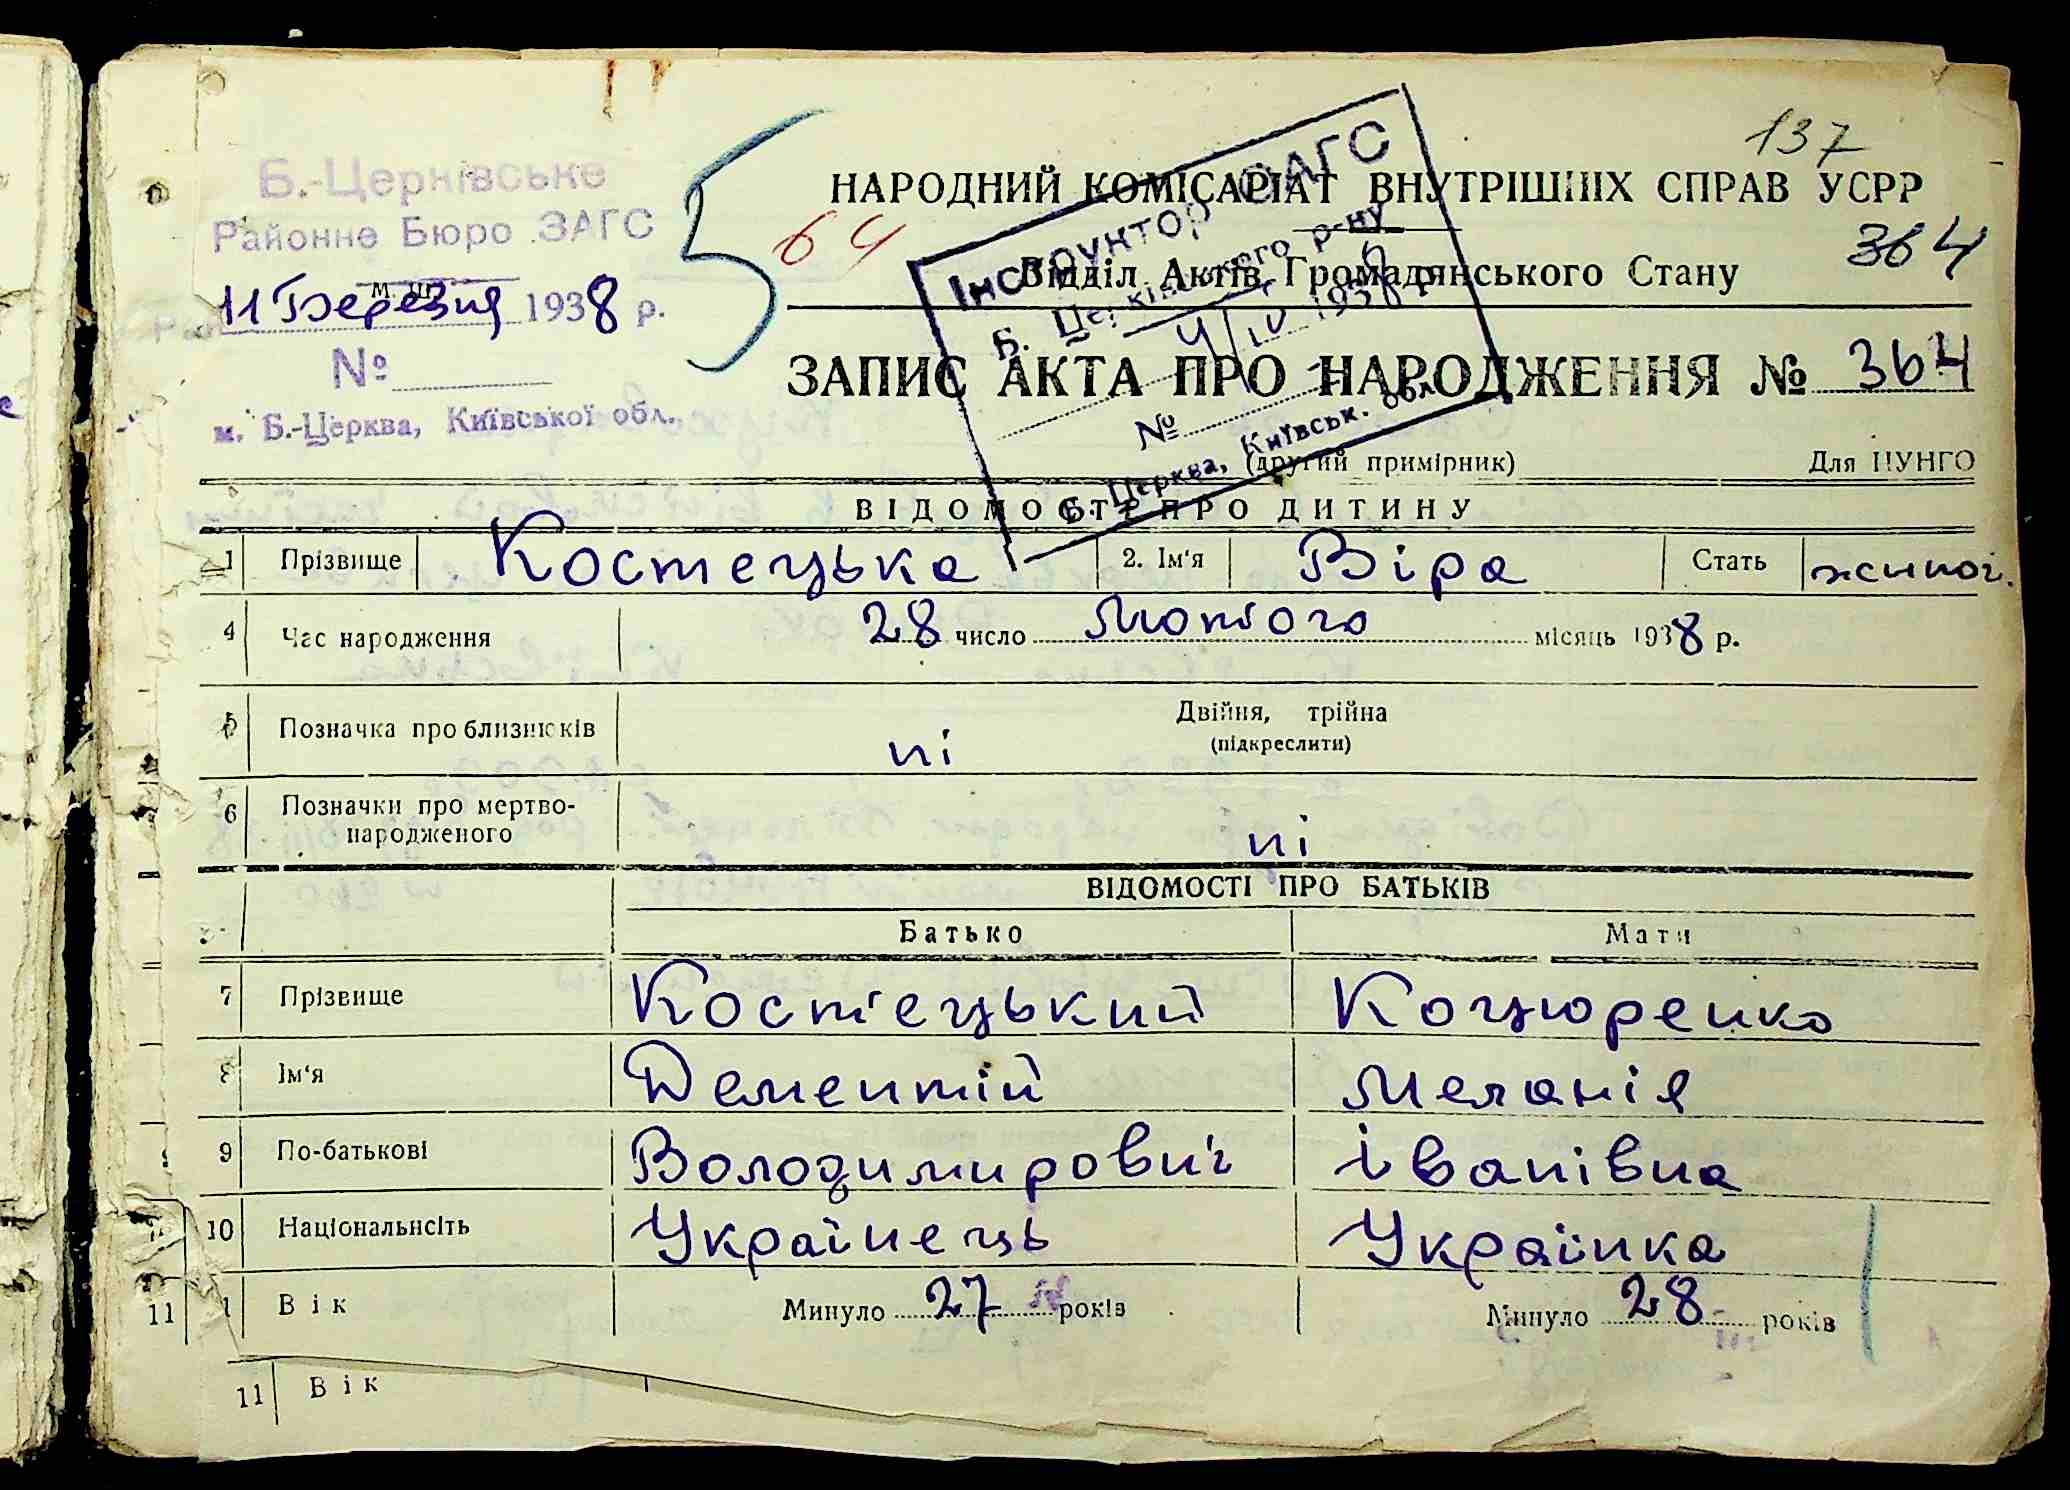 137
Б.-Церківське
Районне Бюро ЗАГС
11 Березня 1938 р.
№
м. Б.-Церква, Київської обл.
5
64
НАРОДНИЙ КОМІСАРІАТ ВНУТРІШНІХ СПРАВ УСРР
364
Відділ Актів Громадянського Стану
Інструктор ЗАГС
Б. Церківського р-ну
4/IV 1938 р.
№
Б. Церква, Київськ. обл.
ЗАПИС АКТА ПРО НАРОДЖЕННЯ № 364
(другий примірник) Для ЦУНГО
ВІДОМОСТІ ПРО ДИТИНУ
1 Прізвище Костецька 2. Ім'я Віра Стать жіноч.
4 Час народження 28 число Лютого місяць 1938 р.
5 Позначка про близнюків ні Двійня, трійна
(підкреслити)
6 Позначки про мертво-
народженого ні
ВІДОМОСТІ ПРО БАТЬКІВ
Батько Мати
7 Прізвище Костецький Коцюренко
8 Ім'я Дементій Меланія
9 По-батькові Володимирович Іванівна
10 Національність Українець Українка
11 1 Вік Минуло 27 років Минуло 28 років
11 Вік